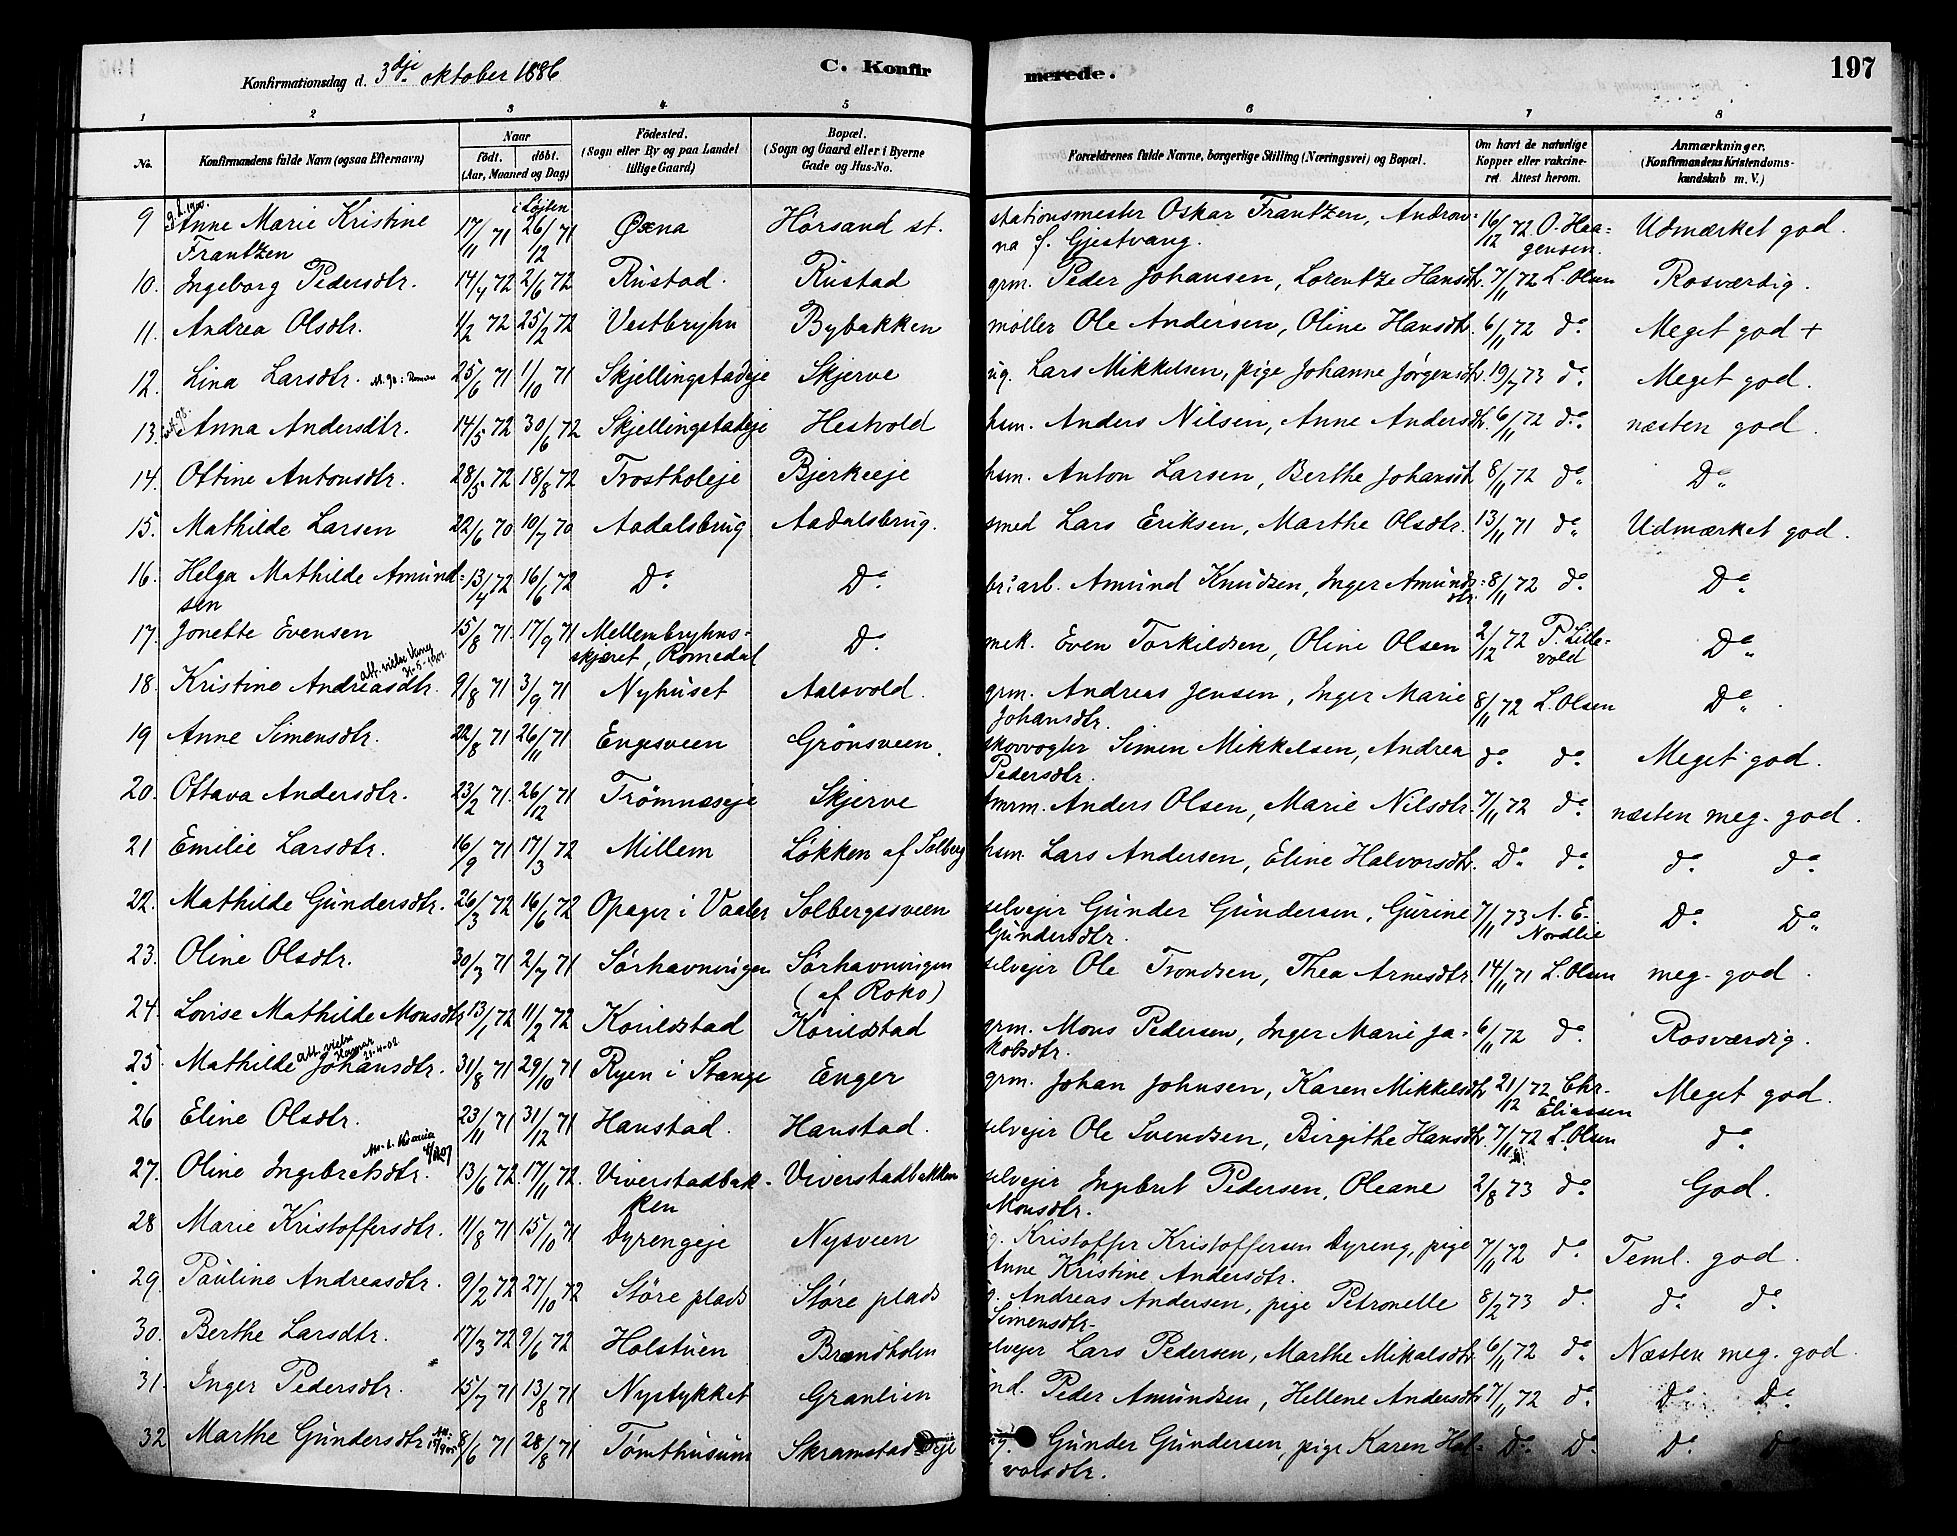 Konfirmationsdag d. 3dje oktober 1886
C. Konfirmerede.
197
1 2 3 4 5 6 7 8
No. Konfirmandens fulde Navn (ogsaa Efternavn) Naar født. døbt. (Aar, Maaned og Dag) Födested. (Sogn eller By og paa Landet tillige Gaard) Bopæl. (Sogn og Gaard eller i Byerne Gade og Hus-No. Forældrenes fulde Navne, borgerlige Stilling (Næringsvei) og Bopæl. Om havt de naturlige Kopper eller vakcineret. Attest herom. Anmærkninger. (Konfirmandens Kristendomskundskab m. V.)
9 Anne Marie Kristine Frantzen 17/11 71 i Løjten 26/12 71 Øxna Hørsand st. stationsmester Oskar Frantzen, Andrina f. Gjestvang. 16/12 72 O. Haagensen. Udmærket god.
10. Ingeborg Pedersdtr. 14/4 72 2/6 72 Rustad. Rustad grm. Peder Johansen, Lorentze Hansdtr. 7/11 72 L. Olsen Rosværdig.
11. Andrea Olsdtr. 1/2 72 25/2 72 Vestbryhn Bybakken møller Ole Andersen, Oline Hansdtr. 6/11 72 do Meget god +
12. Lina Larsdtr. 25/6 71 1/10 71 Skjellingstadeje Skjerve ug. Lars Mikkelsen, pige Johanne Jørgensdtr. 19/7 73 do Meget god.
13. Anna Andersdtr. 14/5 72 30/6 72 Skjellingstadeje Hestvold hsm. Anders Nilsen, Anne Andersdtr. 6/11 72 do næsten god.
14. Ottine Antonsdtr. 28/5 72 18/8 72 Trostholeje Bjerkeeje hsm. Anton Larsen, Berthe Johansdtr. 8/11 72 do Do
15. Mathilde Larsen 22/6 70 10/7 70 Aadalsbrug Aadalsbrug. smed Lars Eriksen, Marthe Olsdtr. 13/11 71 do Udmærket god.
16. Helga Mathilde Amundsen 13/4 72 16/6 72 Do Do br: arb. Amund Knudsen, Inger Amundsdtr. 8/11 72 do Do
17. Jonette Evensen 15/8 71. 17/9 71 Mellembryhnsskjæret, Romedal Do mek. Even Torkildsen, Oline Olsen 2/12 72 P. Lillevold Do
18. Kristine Andreasdtr. att. vielse Vang 21-5-1901 9/8 71 3/9 71 Nyhuset Aalsvold. grm. Andreas Jensen, Inger Marie Johansdtr. 8/11 72 L. Olsen Do
19 Anne Simensdtr. 22/8 71 26/11 71 Engesveen Grönsveen. skovvogter Simen Mikkelsen, Andrea Pedersdtr. do do Meget god.
20. Ottava Andersdtr. 23/2 71. 26/12 71 Trömnæseje Skjerve tmrm. Anders Olsen, Marie Nilsdtr. 7/11 72 do næsten meg. god.
21 Emilie Larsdtr. 16/9 71 17/3 72 Millem Løkken af Solberg hsm. Lars Andersen, Eline Halvorsdtr. Do do do do
22. Mathilde Gundersdtr. 26/3 72 16/6 72 Opager i Vaaler Solbergsveen selvejer Gunder Gundersen, Gurine Gundersdtr. 7/11 73 A. E. Nordlie Do Do
23. Oline Olsdtr. 30/3 71 2/7 71 Sørhavningen Sørhavningen (af Roko) selvejer Ole Trondsen, Thea Arnesdtr. 14/11 71 L. Olsen meg. god.
24. Lovise Mathilde Monsdtr. 13/1 72 11/2 72 Korildstad Korildstad grm. Mons Pedersen, Inger Marie Jakobsdtr. 6/11 72 do Rosværdig.
25. Mathilde Johansdtr. att. vielse Hamar 21-4-02 31/8 71 29/10 71 Ryen i Stange Enger grm. Johan Johnsen, Karen Mikkelsdtr. 21/12 72 Chr. Eliassen Meget god.
26 Eline Olsdtr. 23/11 71 31/12 71 Hanstad. Hanstad. selvejer Ole Svendsen, Birgithe Hansdtr. 7/11 72 L. Olsen do
27. Oline Ingebretsdtr. 13/6 72 17/11 72. Viverstadbakken Viverstadbakken selvejer Ingebret Pedersen, Oleane Monsdtr. 2/8 73 do God.
28 Marie Kristoffersdtr. 11/8 71 15/10 71 Dyrengeje Nysveen g. Kristoffer Kristoffersen Dyreng, pige Anne Kristine Andersdtr. 7/11 72 do Teml. god.
29. Pauline Andreasdtr. 9/2 72 27/10 72 Störe plads Störe plads g. Andreas Andersen, pige Petronelle Simensdtr. 8/2 73 do do do
30. Berthe Larsdtr. 17/3 72 9/6 72 Holstuen Brændholen selvejer Lars Pedersen, Marthe Mikalsdtr. 6/11 72 do Næsten meg. god.
31. Inger Pedersdtr. 15/7 71 13/8 71 Nystykket Granlien ind. Peder Amundsen, Hellene Andersdtr. 7/11 72 do Do Do
32 Marthe Gundersdtr. 8/6 71 28/8 71 Tømthusum Skramstadeje ug. Gunder Gundersen, pige Karen Halvorsdtr. Do Do Do Do